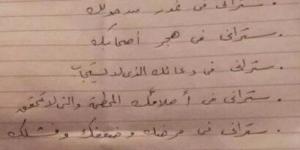 . ستراني في غدر من حولك
. ستراني في هجر أصحابك
. ستراني في دعائك الذي لا يستجاب
. ستراني في أحلامك المحطمة والتي لا تتحقق
. ستراني في مرضك وضعفك وفشلك